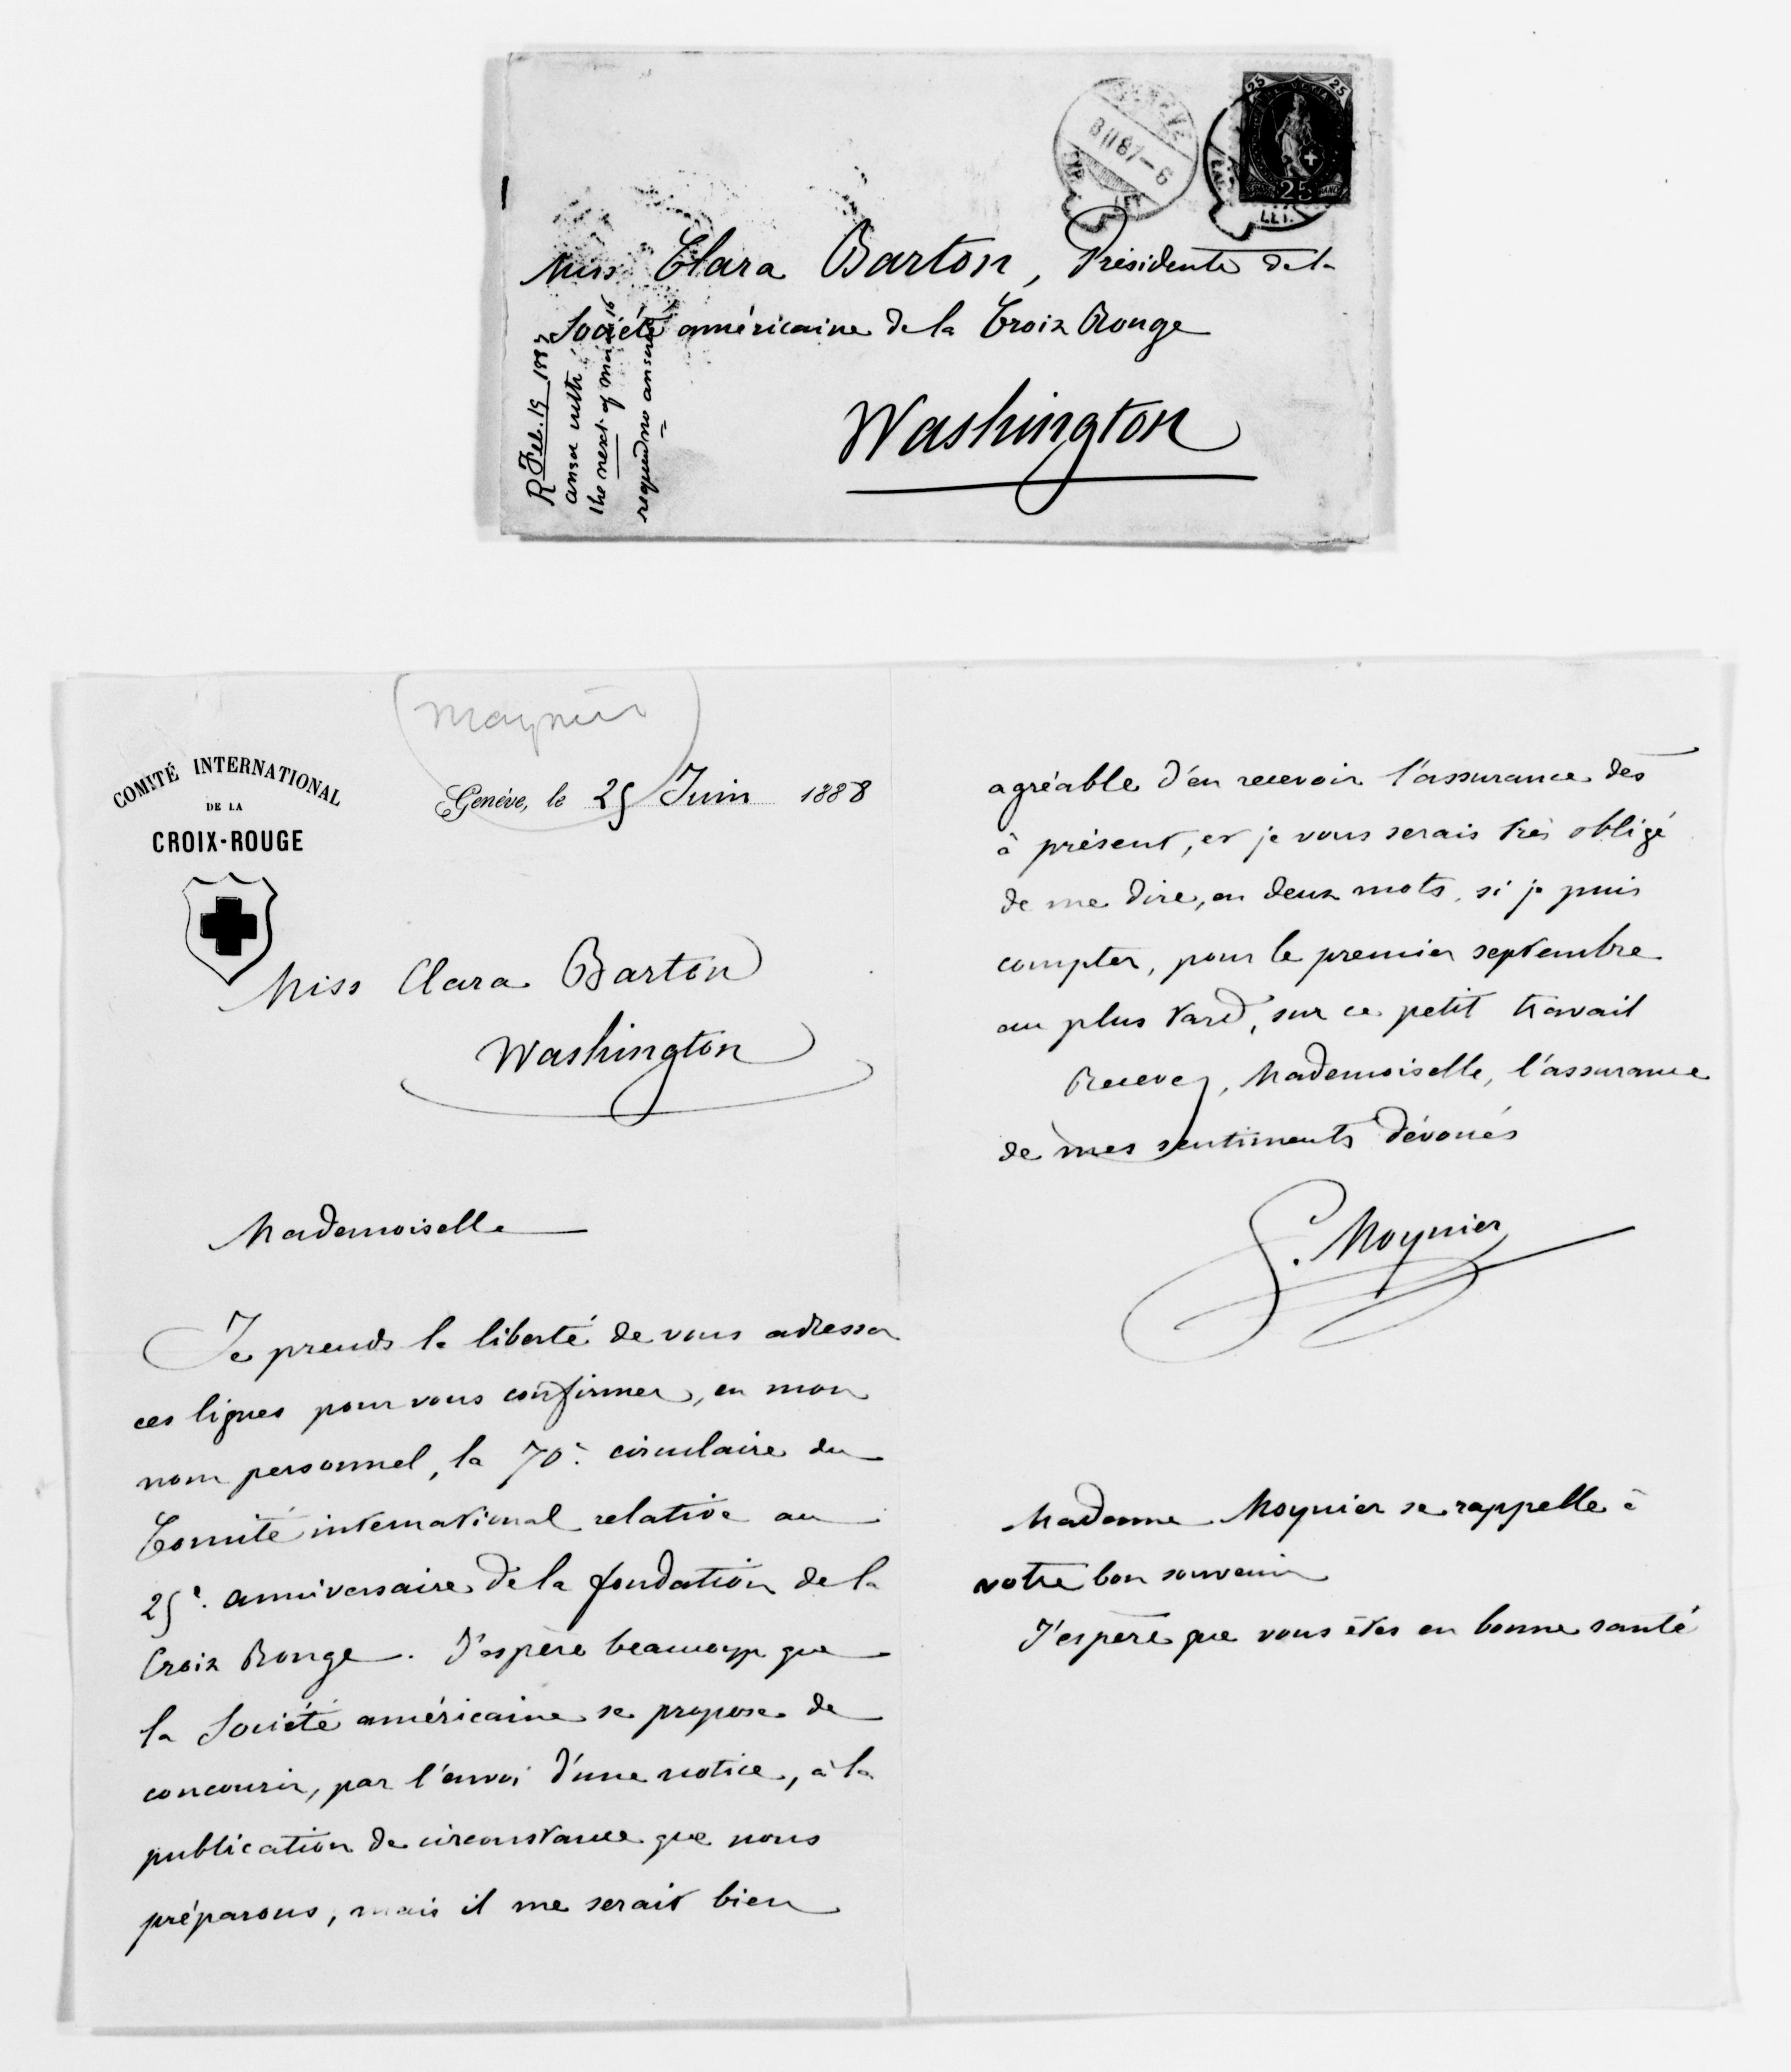 GENÈVE
8 II 87–6
25 25
25
Miss Clara Barton, Présidente de la
Société américaine de la Croix Rouge
Washington
R Feb. 19 1887
answ with
the next of March 16
required no answer
Moynier
COMITÉ INTERNATIONAL
DE LA
CROIX-ROUGE
Genève, le 25 Juin 1888
Miss Clara Barton
Washington
Mademoiselle
Je prends la liberté de vous adresser
ces lignes pour vous confirmer, en mon
nom personnel, la 70e. circulaire du
Comité international relative au
25e. anniversaire de la fondation de la
Croix Rouge. J'espère beaucoup que
la Société américaine se propose de
concourir, par l'envoi d'une notice, à la
publication de circonstance que nous
préparons, mais il me serait bien
agréable d'en recevoir l'assurance dès
à présent, et je vous serais très obligé
de me dire, en deux mots, si je puis
compter, pour le premier septembre
au plus tard, sur ce petit travail
Recevez, Mademoiselle, l'assurance
de mes sentiments dévoués
G. Moynier
Madame Moynier se rappelle à
votre bon souvenir
J'espère que vous êtes en bonne santé